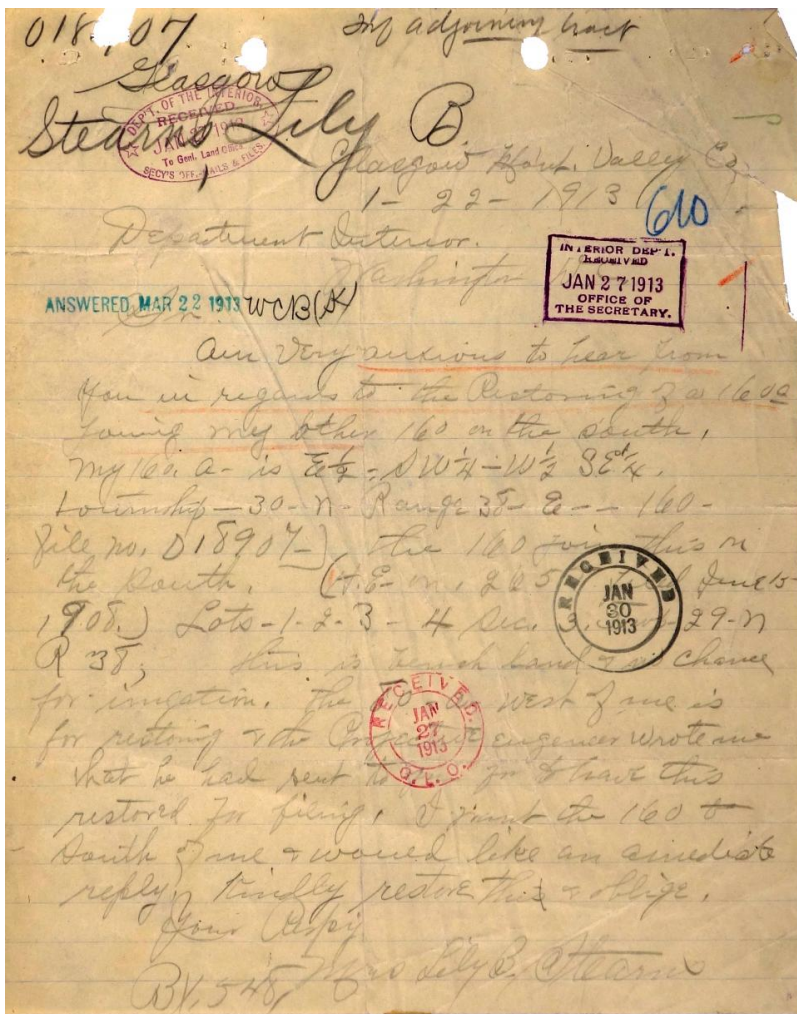 018907
Inf adjoining tract
Glasgow
Stearns, Lily B.
DEP'T. OF THE INTERIOR
RECEIVED
JAN 27 1913
To Genl. Land Office
SECY'S OFF. MAILS & FILES
Glasgow Mont. Valley Co.
1-22-1913
610
Department Interior.
Washington
INTERIOR DEP'T.
RECEIVED
JAN 27 1913
OFFICE OF
THE SECRETARY.
ANSWERED MAR 22 1913 WCB
Sir
Am Very anxious to hear from
You in regards to the Restoring of a 160 a
Joining my other 160 on the south,
my 160. a- is E½-SW¼-W½ SE¼.
township-30-N-Range 38-E-- 160-
File no. 018907-) the 160 join this on
the South. (H.E- no. 265 June 15-
1908.) Lots-1-2-3-4 Sec. 29-N
R 38, this is bench land & no chance
for irrigation. the west of me is
for restoring & the engineer wrote me
that he had sent to have this
restored for filing. I want the 160 to
South of me & would like an amediate
reply. Kindly restore this & oblige.
Your Respy
Mrs Lily B. Stearns
BX. 548,
RECEIVED
JAN
30
1913
RECEIVED
JAN
27
1913
G.L.O.